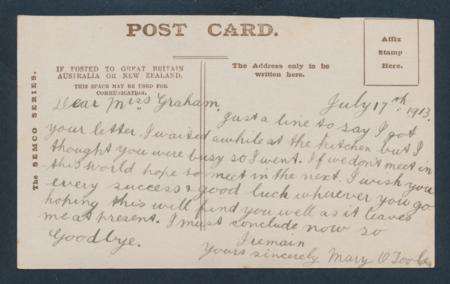 POST CARD.
Affix
Stamp
Here.
IF POSTED TO GREAT BRITAIN
AUSTRALIA OR NEW ZEALAND.
THIS SPACE MAY BE USED FOR
COMMUNICATION.
The Address only to be
written here.
The SEMCO SERIES.
Dear Miss Graham,
July 17th 1913.
Just a line to say I got
your letter. I waited awhile at the kitchen but I
thought you were busy so I went. If we don't meet in
this world hope to meet in the next. I wish you
every success & good luck wherever you go
hoping this will find you well as it leaves
me at present. I must conclude now so
Goodbye.
I remain
Yours sincerely Mary O'Toole